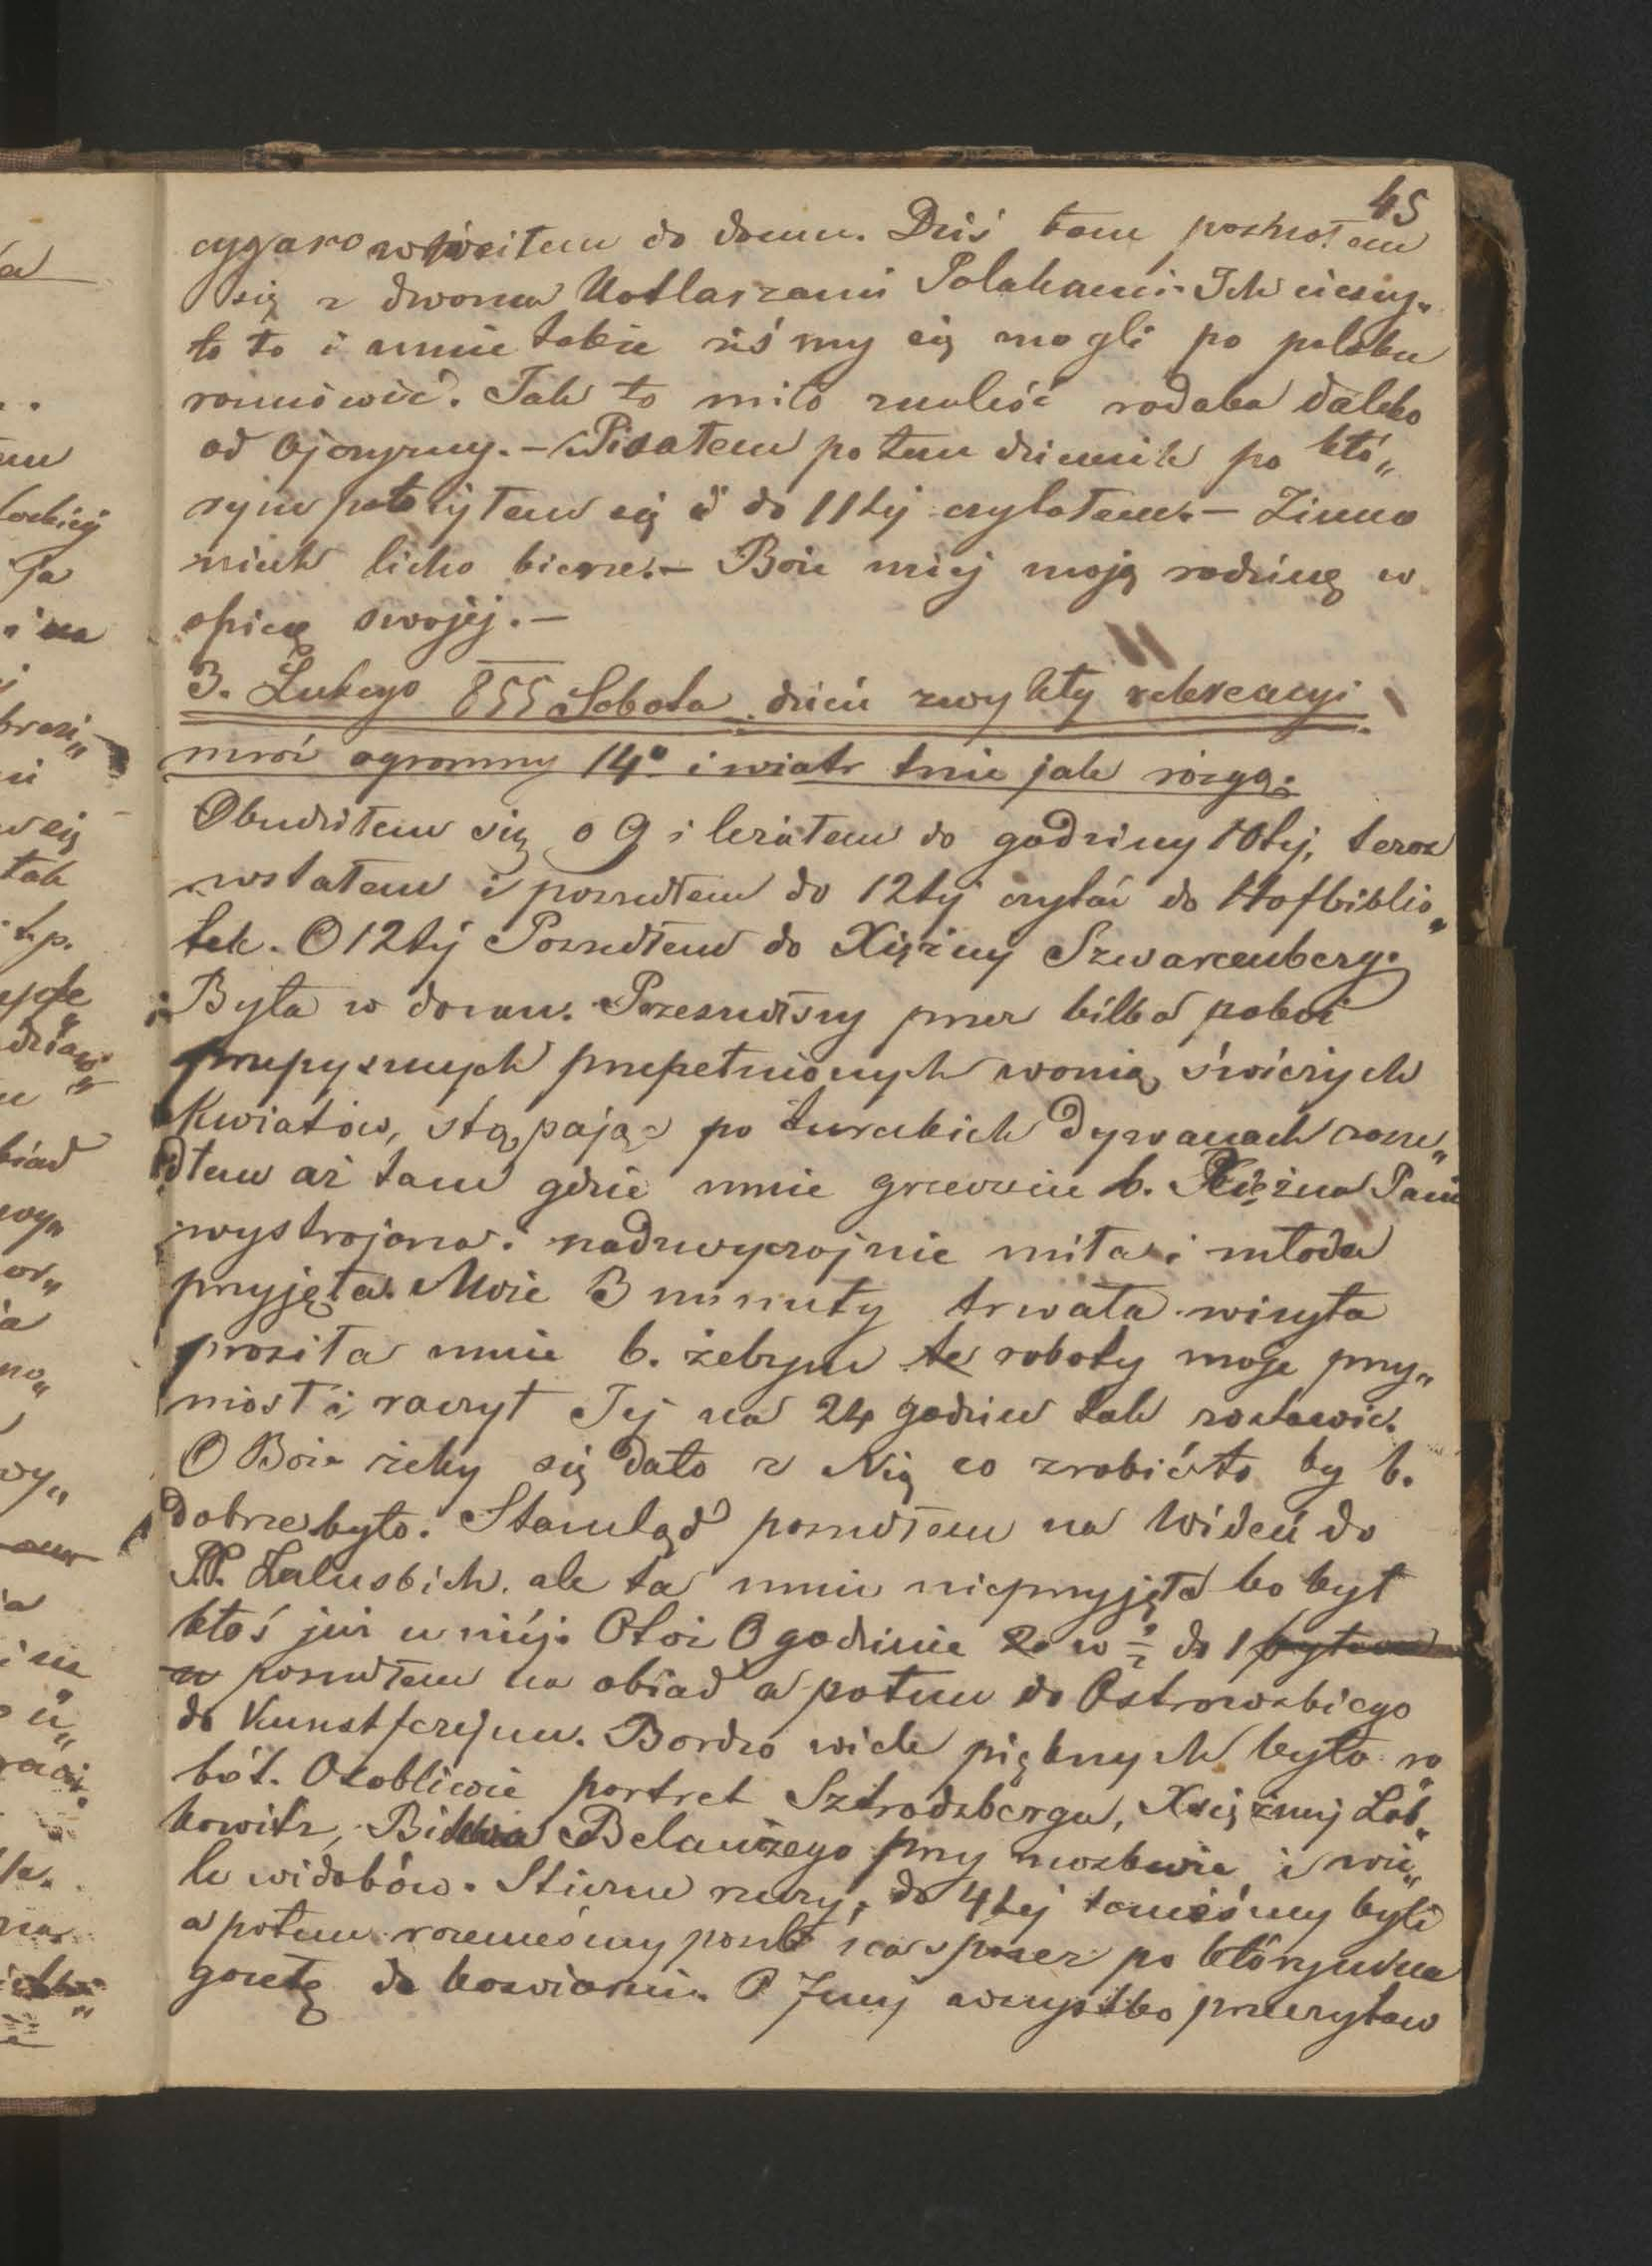 45
cygaro wróciłem do domu. Dziś tam poznałem
się z dwoma Kotlarzami Polakami. Ich cieszy„
ło to i mnie także żeśmy się mogli po polsku
rozmówić. Tak to miło znaleść rodaka daleko
od Ojczyzny. – Pisałem potem dziennik po któ„
rym położyłem się i do 11tej czytałem. – Zimno
niech licho bierze. – Boże miej moją rodzinę w
opiece swojej. –
3. Lutego 855 Sobota dzień zwykły rekreacyi
mróz ogromny 14° i wiatr tnie jak rózgą.
Obudziłem się o 9 i leżałem do godziny 10tej, teraz
wstałem i poszedłem do 12tej czytać do Hofbiblio„
tek. O 12tej Poszedłem do Xiężny Szwarcenberg.
Była w domu. Przeszedłszy przez kilka pokoi
przepysznych przepełnionych wonią świeżych
Kwiatów, stąpając po tureckich dywanach zasze„
dłem aż tam gdzie mnie grzecznie b. Xiężna Pani
wystrojona. nadzwyczajnie miła i młoda
przyjęła. Może 3 minuty trwała wizyta
prosiła mnie b. żebym te roboty moje przy„
niósł i raczył Jej na 24 godzin tak zostawić.
O Boże żeby się dało z Nią co zrobić to by b.
dobrze było. Stamtąd poszedłem na Wideń do
PP. Zaluskich. ale ta mnie nieprzyjęła bo był
ktoś już u niéj. Otoż O godzinie w ½ do 1
poszedłem na obiad a potem do Ostrowskiego
do Kunstferejnu. Bardzo wiele pięknych było ro„
bót. Osobliwie portret Sztrodzbergu, Xsiężnej Lob„
kowitz, Belanżego przy i wie„
le widoków. do 4tej tameśmy byli
a potem razemeśmy poszli na spacer po którym na
gazetę do kawiarni. O 7mej wszystko przeczytaw